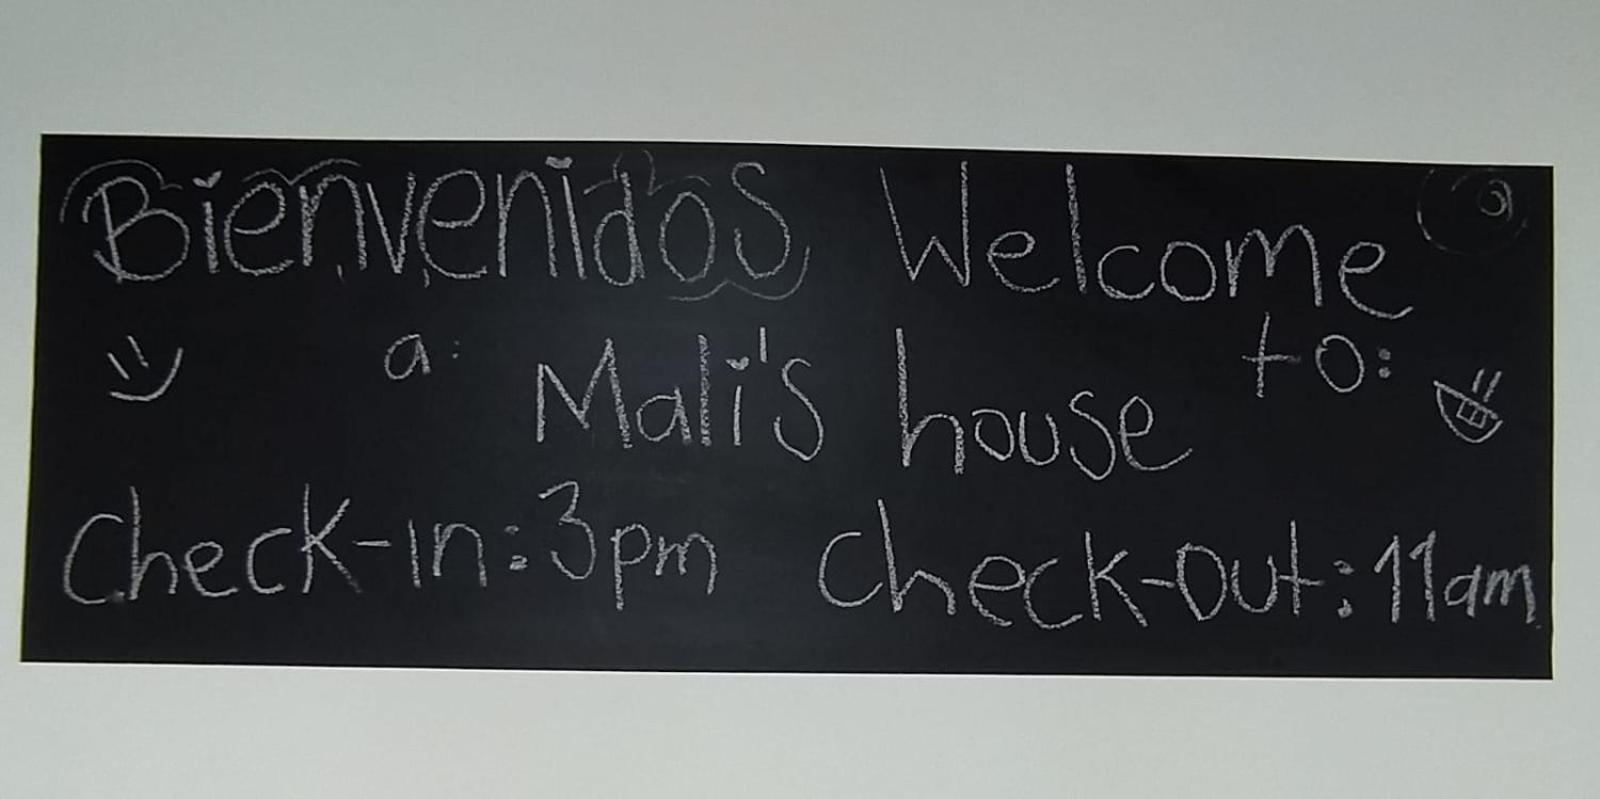 Bienvenidos Welcome
a: to:
Mali's house
Check-in: 3pm Check-out: 11am